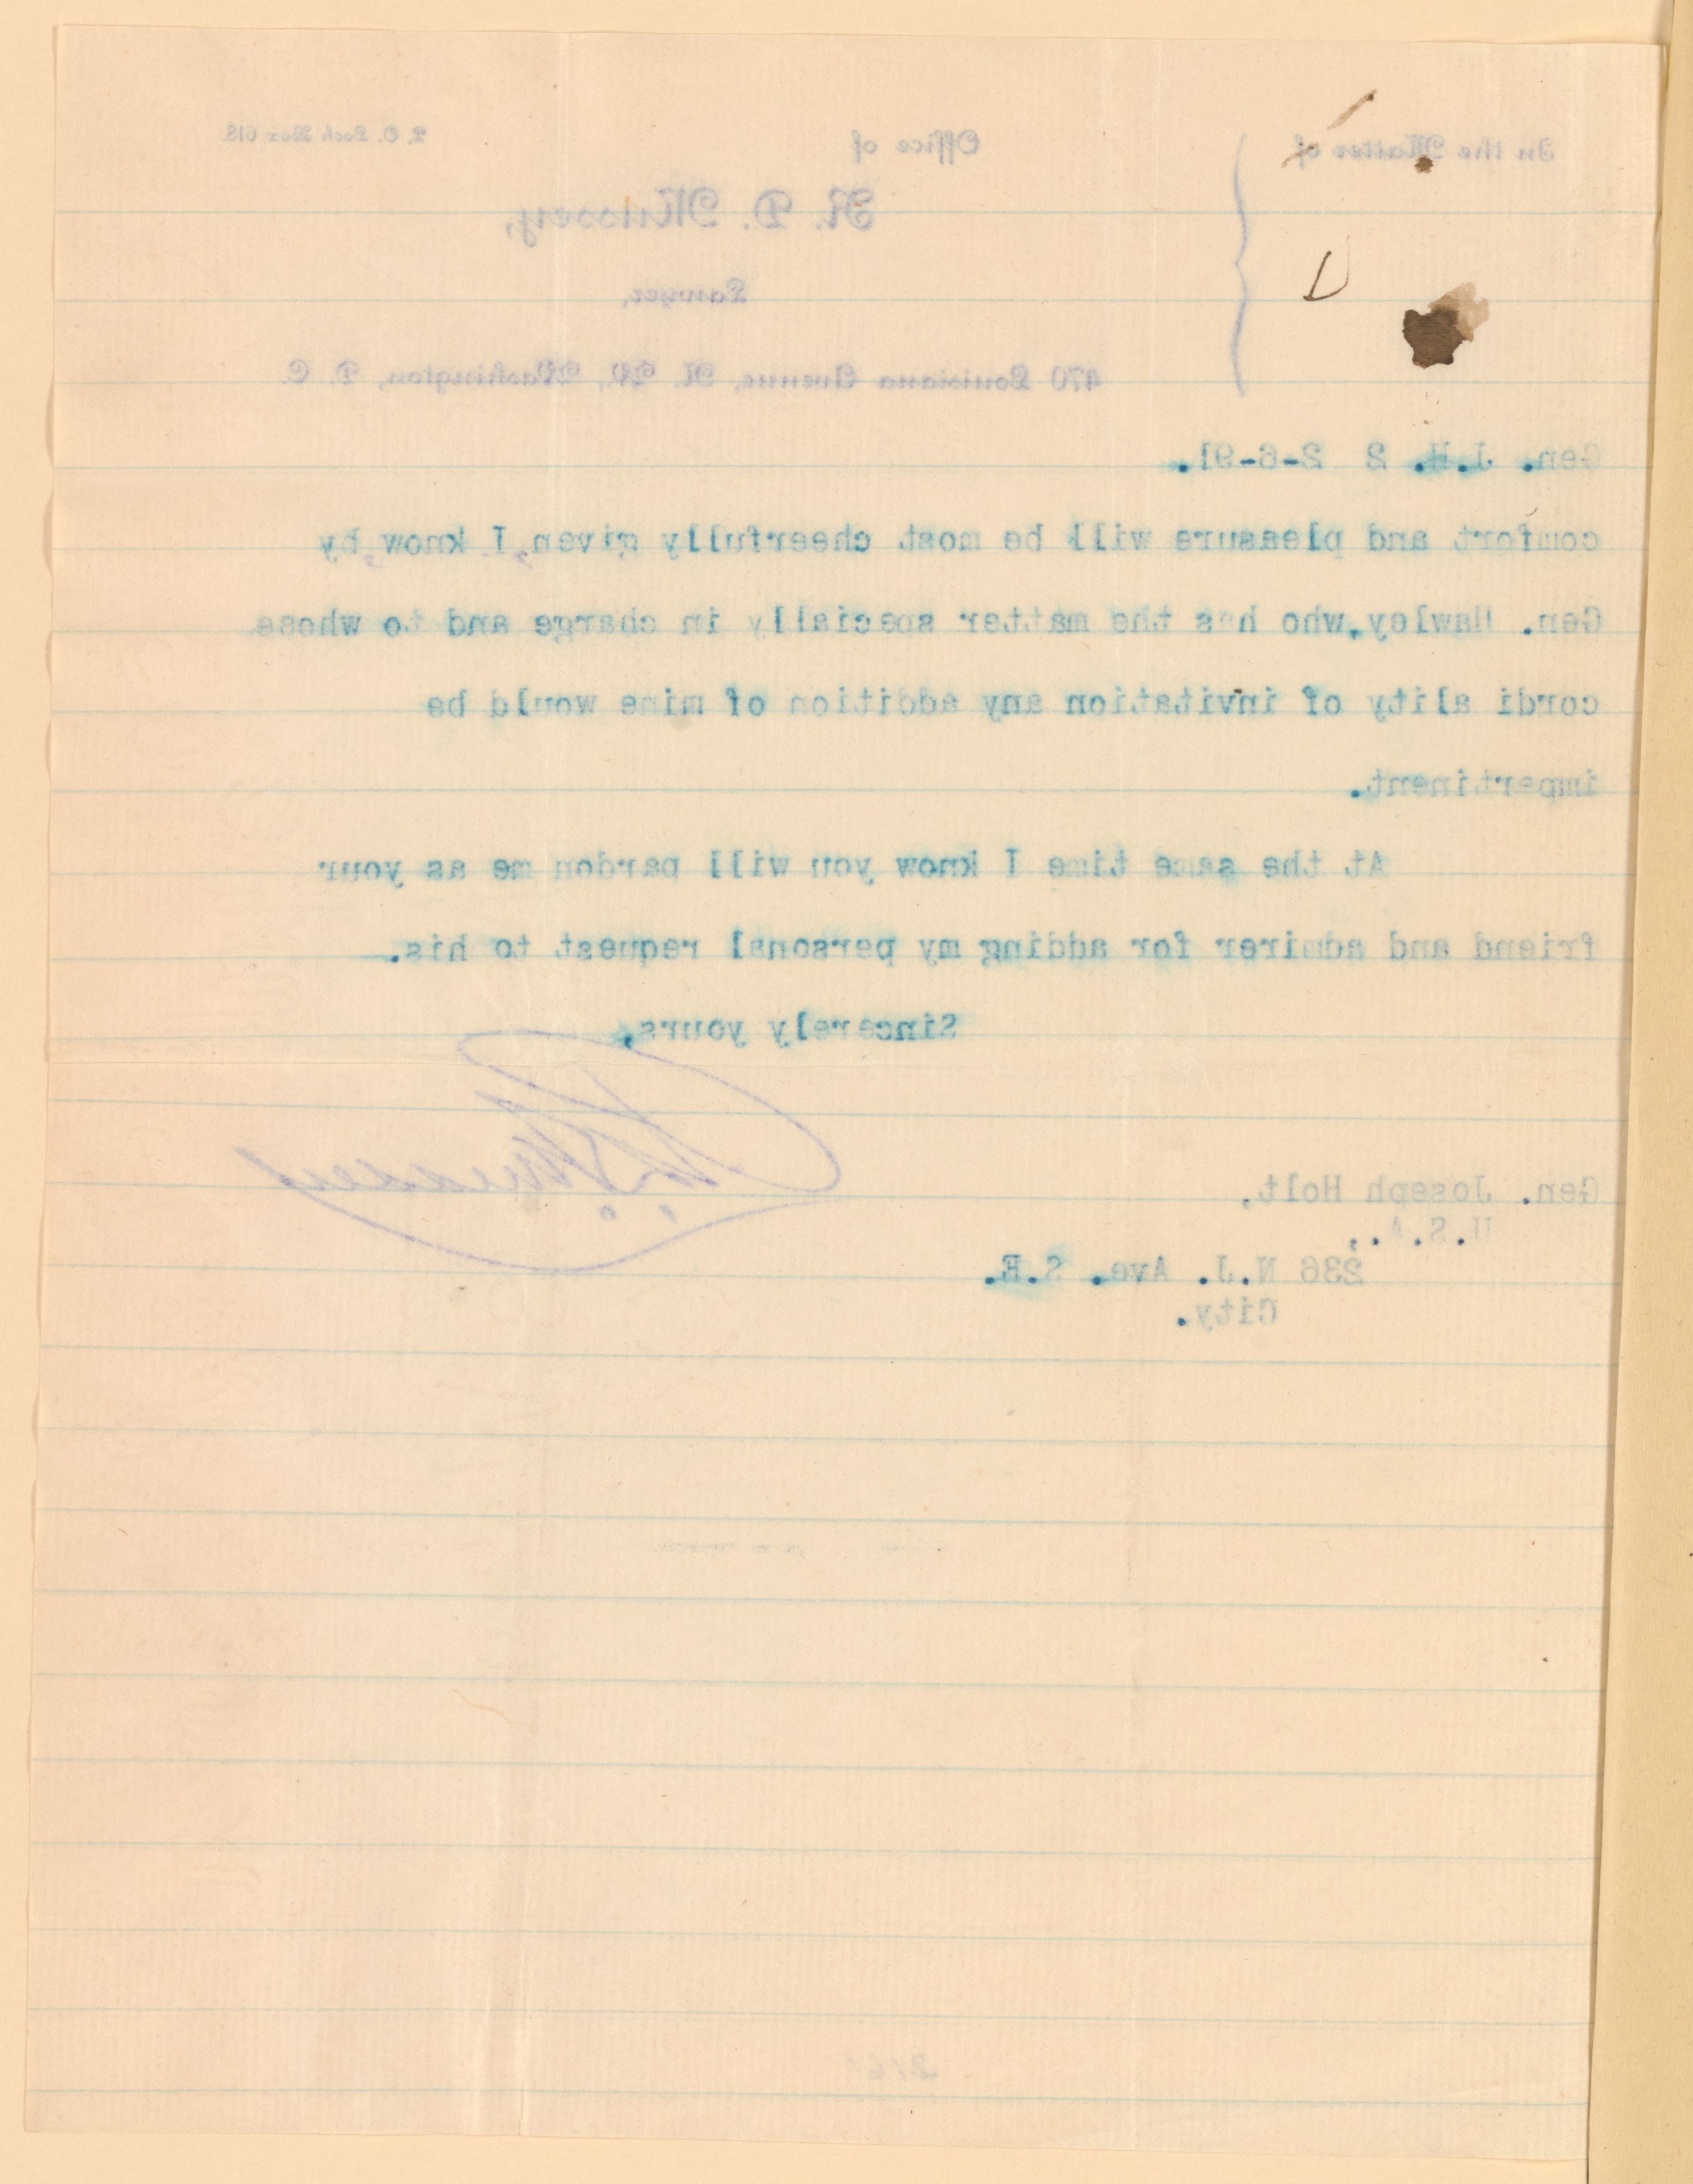 In the Matter of
Office of
P. O. Lock Box 618.
R. D. Mussey,
Lawyer,
470 Louisiana Avenue, N. W., Washington, D. C.
Gen. J.H. 2 2-6-91.
comfort and pleasure will be most cheerfully given, I know, by
Gen. Hawley, who has the matter specially in charge and to whose
cordi ality of invitation any addition of mine would be
impertinent.
At the same time I know you will pardon me as your
friend and admirer for adding my personal request to his.
Sincerely yours,
R. D. Mussey
Gen. Joseph Holt,
U.S.A.,
236 N.J. Ave. S.E.
City.
3161